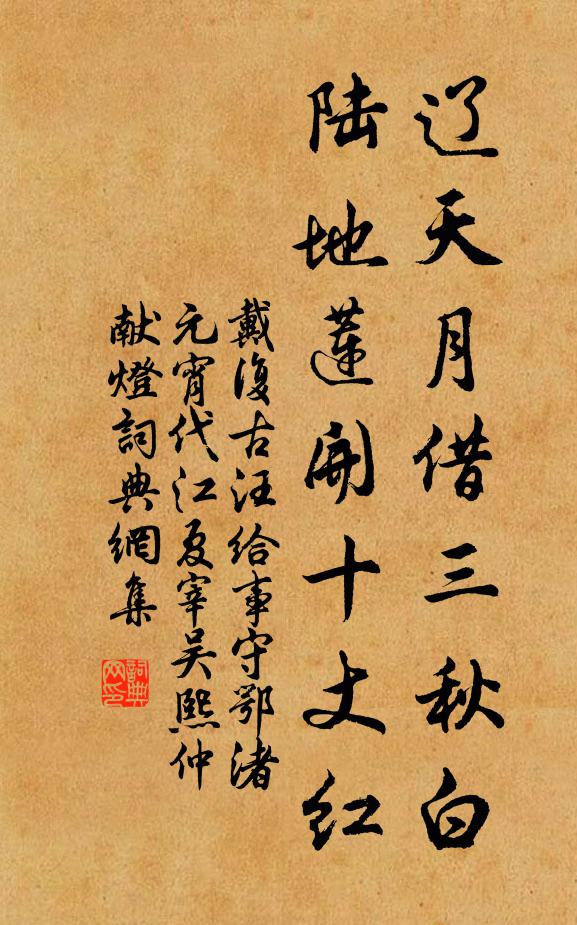 辽天月借三秋白
陆地莲开十丈红
戴復古汪给事守鄂渚
元宵代江夏宰吴熙仲
献燈詞典網集
詞典网印